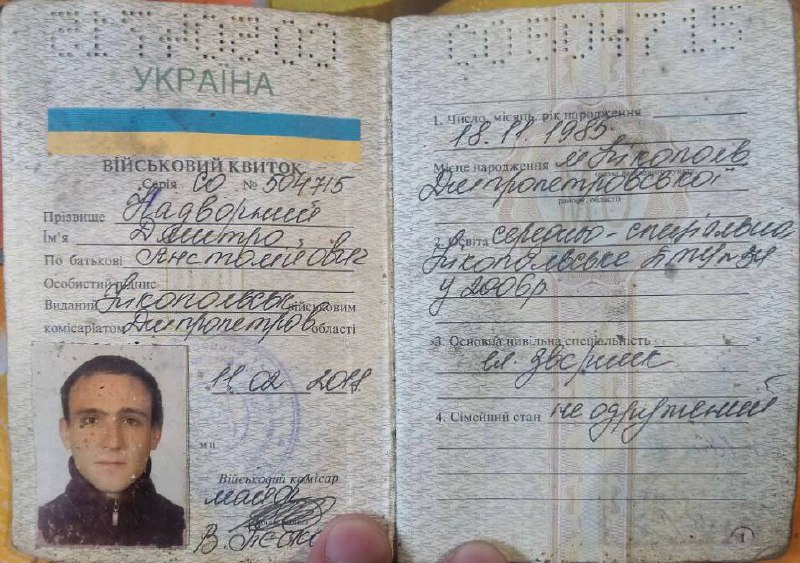 УКРАЇНА
ВІЙСЬКОВИЙ КВИТОК
Серія СО № 504715
Прізвище Надворний
Ім'я Дмитро
По батькові Анатолійович
Особистий підпис
Виданий Нікопольськ військовим
комісаріатом Дніпропетров області
11 02 2011
мп
Військовий комісар
майор
В.
СО504715
1. Число, місяць, рік народження
18.11.1985
Місце народження м Нікополь
Дніпропетровської
району, області
2. Освіта середньо-спеціальна
Нікопольське
у 2006р
3. Основна цивільна спеціальність
ел. зварник
4. Сімейний стан не одружений
1